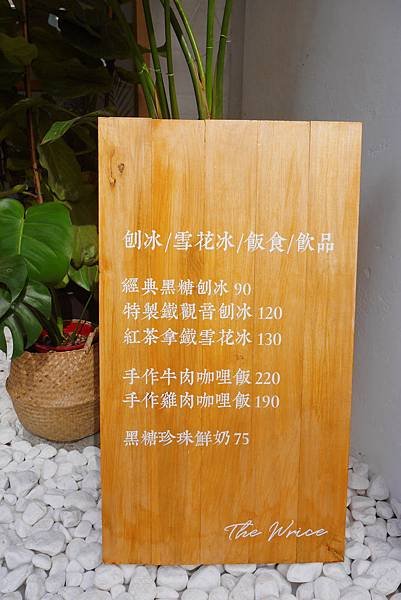 刨冰/雪花冰/飯食/飲品
經典黑糖刨冰 90
特製鐵觀音刨冰 120
紅茶拿鐵雪花冰 130
手作牛肉咖哩飯 220
手作雞肉咖哩飯 190
黑糖珍珠鮮奶 75
The Wrice